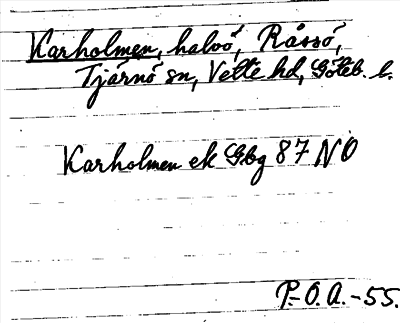 Karholmen, halvö, Råssö,
Tjärnö sn, Vette hd, Göteb. l.
Karholmen ek Gbg 87 NO
P.-O.A.-55.